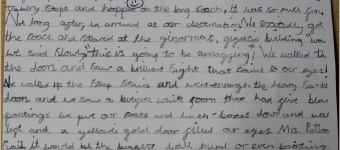 steps and hopped on the long coach. It was so much fun.
Not long after, we arrived at our destination! We excitedly got
the coach and stared at the ginormas, gigantic building
we said slowly "this is going to be amazzing! We walked
the doors and saw a brilliant sight that came to our eyes!
We walked up the steep stairs and went through the heavy
doors and we saw a white room that had blue
paintings we put our coats and lunch-boxes down and
left and a gold door filled our eyes Mrs
said it would be the biggest or even